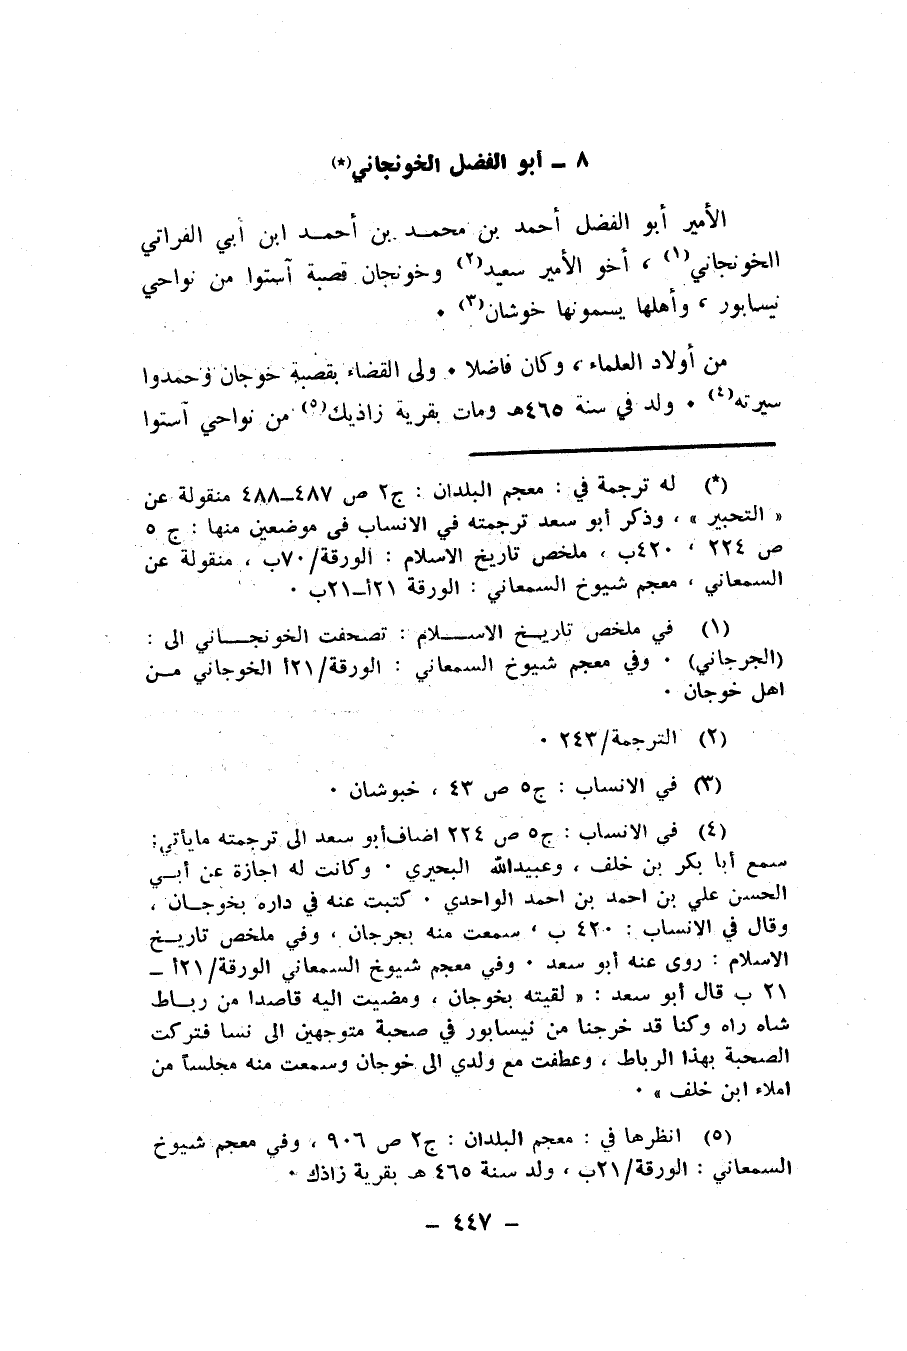 ٨ ـ أبو الفضل الخونجاني(*)
الأمير أبو الفضل أحمد بن محمـد بن أحمـد ابن أبي الفراتي
الخونجاني(١) ، أخو الأمير سعيد(٢) وخونجان قصبة آستوا من نواحي
نيسابور ، وأهلها يسمونها خوشان(٣) ٠
من أولاد العلماء ، وكان فاضلا ٠ ولى القضاء بقصبة خوجان وحمدوا
سيرته(٤) ٠ ولد في سنة ٤٦٥هـ ومات بقرية زاذيك(٥) من نواحي آستوا
(*) له ترجمة في : معجم البلدان : ج٢ ص ٤٨٧ـ٤٨٨ منقولة عن
« التحبير » ، وذكر أبو سعد ترجمته في الانساب فى موضعين منها : ج ٥
ص ٢٢٤ ، ٤٢٠ب ، ملخص تاريخ الاسلام : الورقة/٧٠ب ، منقولة عن
السمعاني ، معجم شيوخ السمعاني : الورقة ٢١أ ـ٢١ب ٠
(١) في ملخص تاريـخ الاسـلام : تصحفت الخونجـاني الى :
(الجرجاني) ٠ وفي معجم شيوخ السمعاني : الورقة/٢١أ الخوجاني مـن
اهل خوجان ٠
(٢) الترجمة/٢٤٣ ٠
(٣) في الانساب : ج٥ ص ٤٣ ، خبوشان ٠
(٤) في الانساب : ج٥ ص ٢٢٤ اضاف أبو سعد الى ترجمته مايأتي:
سمع أبا بكر بن خلف ، وعبيدالله البحيري ٠ وكانت له اجازة عن أبـي
الحسن علي بن احمد بن احمد الواحدي ٠ كتبت عنه في داره بخوجـان ،
وقال في الانساب : ٤٢٠ ب ، سمعت منه بجرجان ، وفي ملخص تاريـخ
الاسلام : روى عنه أبو سعد ٠ وفي معجم شيوخ السمعاني الورقة/٢١أ ـ
٢١ ب قال أبو سعد : « لقيته بخوجان ، ومضيت اليه قاصدا من ربـاط
شاه راه وكنا قد خرجنا من نيسابور في صحبة متوجهين الى نسا فتركت
الصحبة بهذا الرباط ، وعطفت مع ولدي الى خوجان وسمعت منه مجلساً من
املاء ابن خلف » ٠
(٥) انظرها في : معجم البلدان : ج٢ ص ٩٠٦ ، وفي معجم شيوخ
السمعاني : الورقة/٢١ب ، ولد سنة ٤٦٥ هـ بقرية زاذك ٠
ـ ٤٤٧ ـ